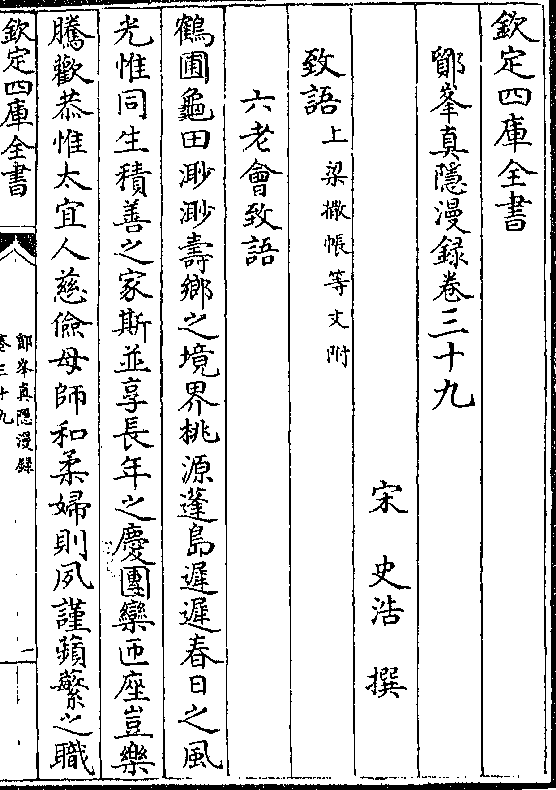 欽定四庫全書
鄮峯真隱漫録卷三十九
宋 史浩 撰
致語上梁撒帳等文附
六老會致語
鶴圃龜田渺渺壽鄉之境界桃源蓬島遲遲春日之風
光惟同生積善之家斯並享長年之慶團欒匝座豈樂
騰歡恭惟太宜人慈儉母師和柔婦則夙謹蘋蘩之職
欽定四庫全書
鄮峯真隱漫録
卷三十九
一